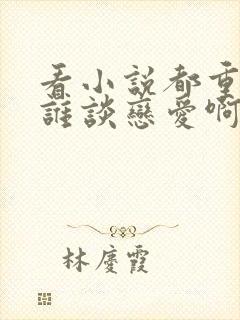 看小説都重
誰談戀愛啊
林慶霞